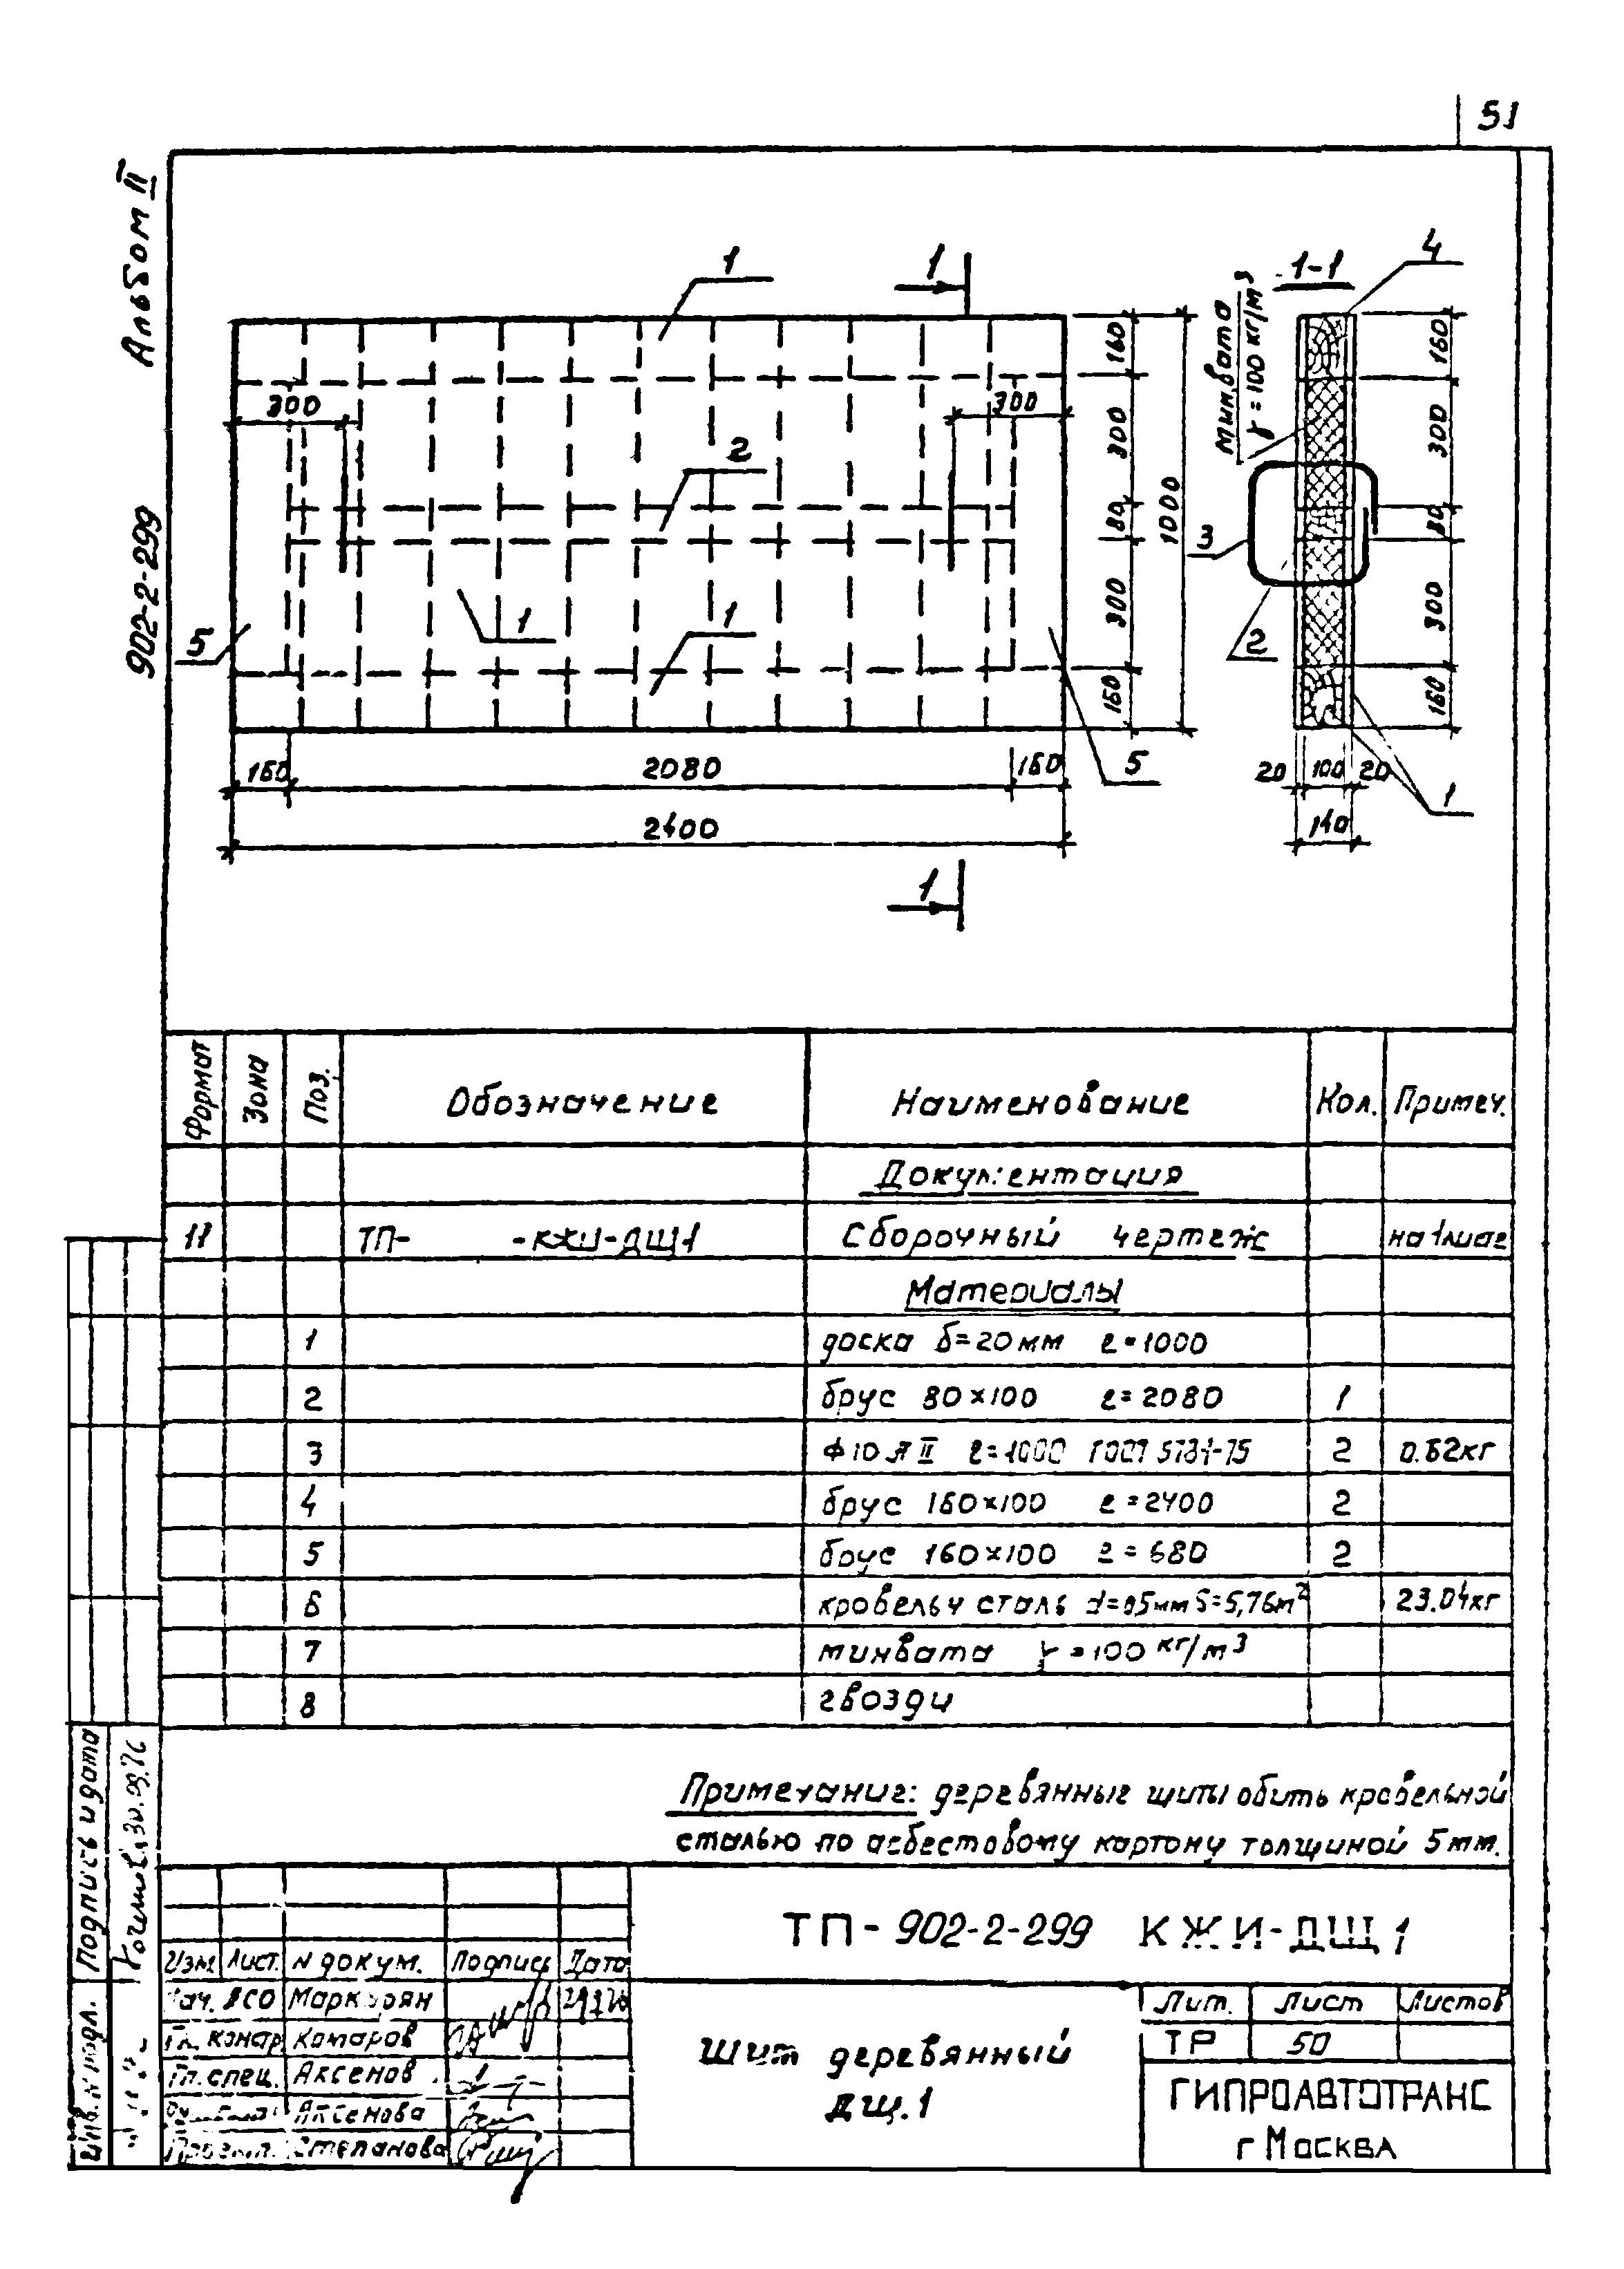 51
Альбом II
902-2-299
1
1
1-1
4
Мин.вата
γ=100 кг/м³
300
300
2
3
1
1
5
5
2
1
160
300
80
300
160
1000
160
300
80
300
160
160
2080
160
2400
20
100
20
140
1
Формат
Зона
Поз.
Обозначение
Наименование
Кол.
Примеч.
Документация
11 ТП- -КЖИ-ДЩ1 Сборочный чертеж на 1 листе
Материалы
1 доска δ=20мм ℓ=1000
2 брус 80×100 ℓ=2080 1
3 ф10 А II ℓ=1000 ГОСТ 5781-75 2 0.62кг
4 брус 160×100 ℓ=2400 2
5 брус 160×100 ℓ=680 2
6 кровельн сталь d=0,5мм S=5,76м² 23.04кг
7 минвата γ=100 кг/м³
8 гвозди
Примечание: деревянные щиты обить кровельной
сталью по асбестовому картону толщиной 5мм.
Подпись и дата
30.09.76
Инв. N подл.
Изм. Лист. N докум. Подпись Дата
Нач. АСО Маркарян
Гл. констр. Комаров
Гл. спец. Аксенов
Аксенова
Проект. Степанова
ТП-902-2-299 КЖИ-ДЩ1
Щит деревянный
ДЩ.1
Лит. Лист Листов
ТР 50
ГИПРОАВТОТРАНС
г Москва